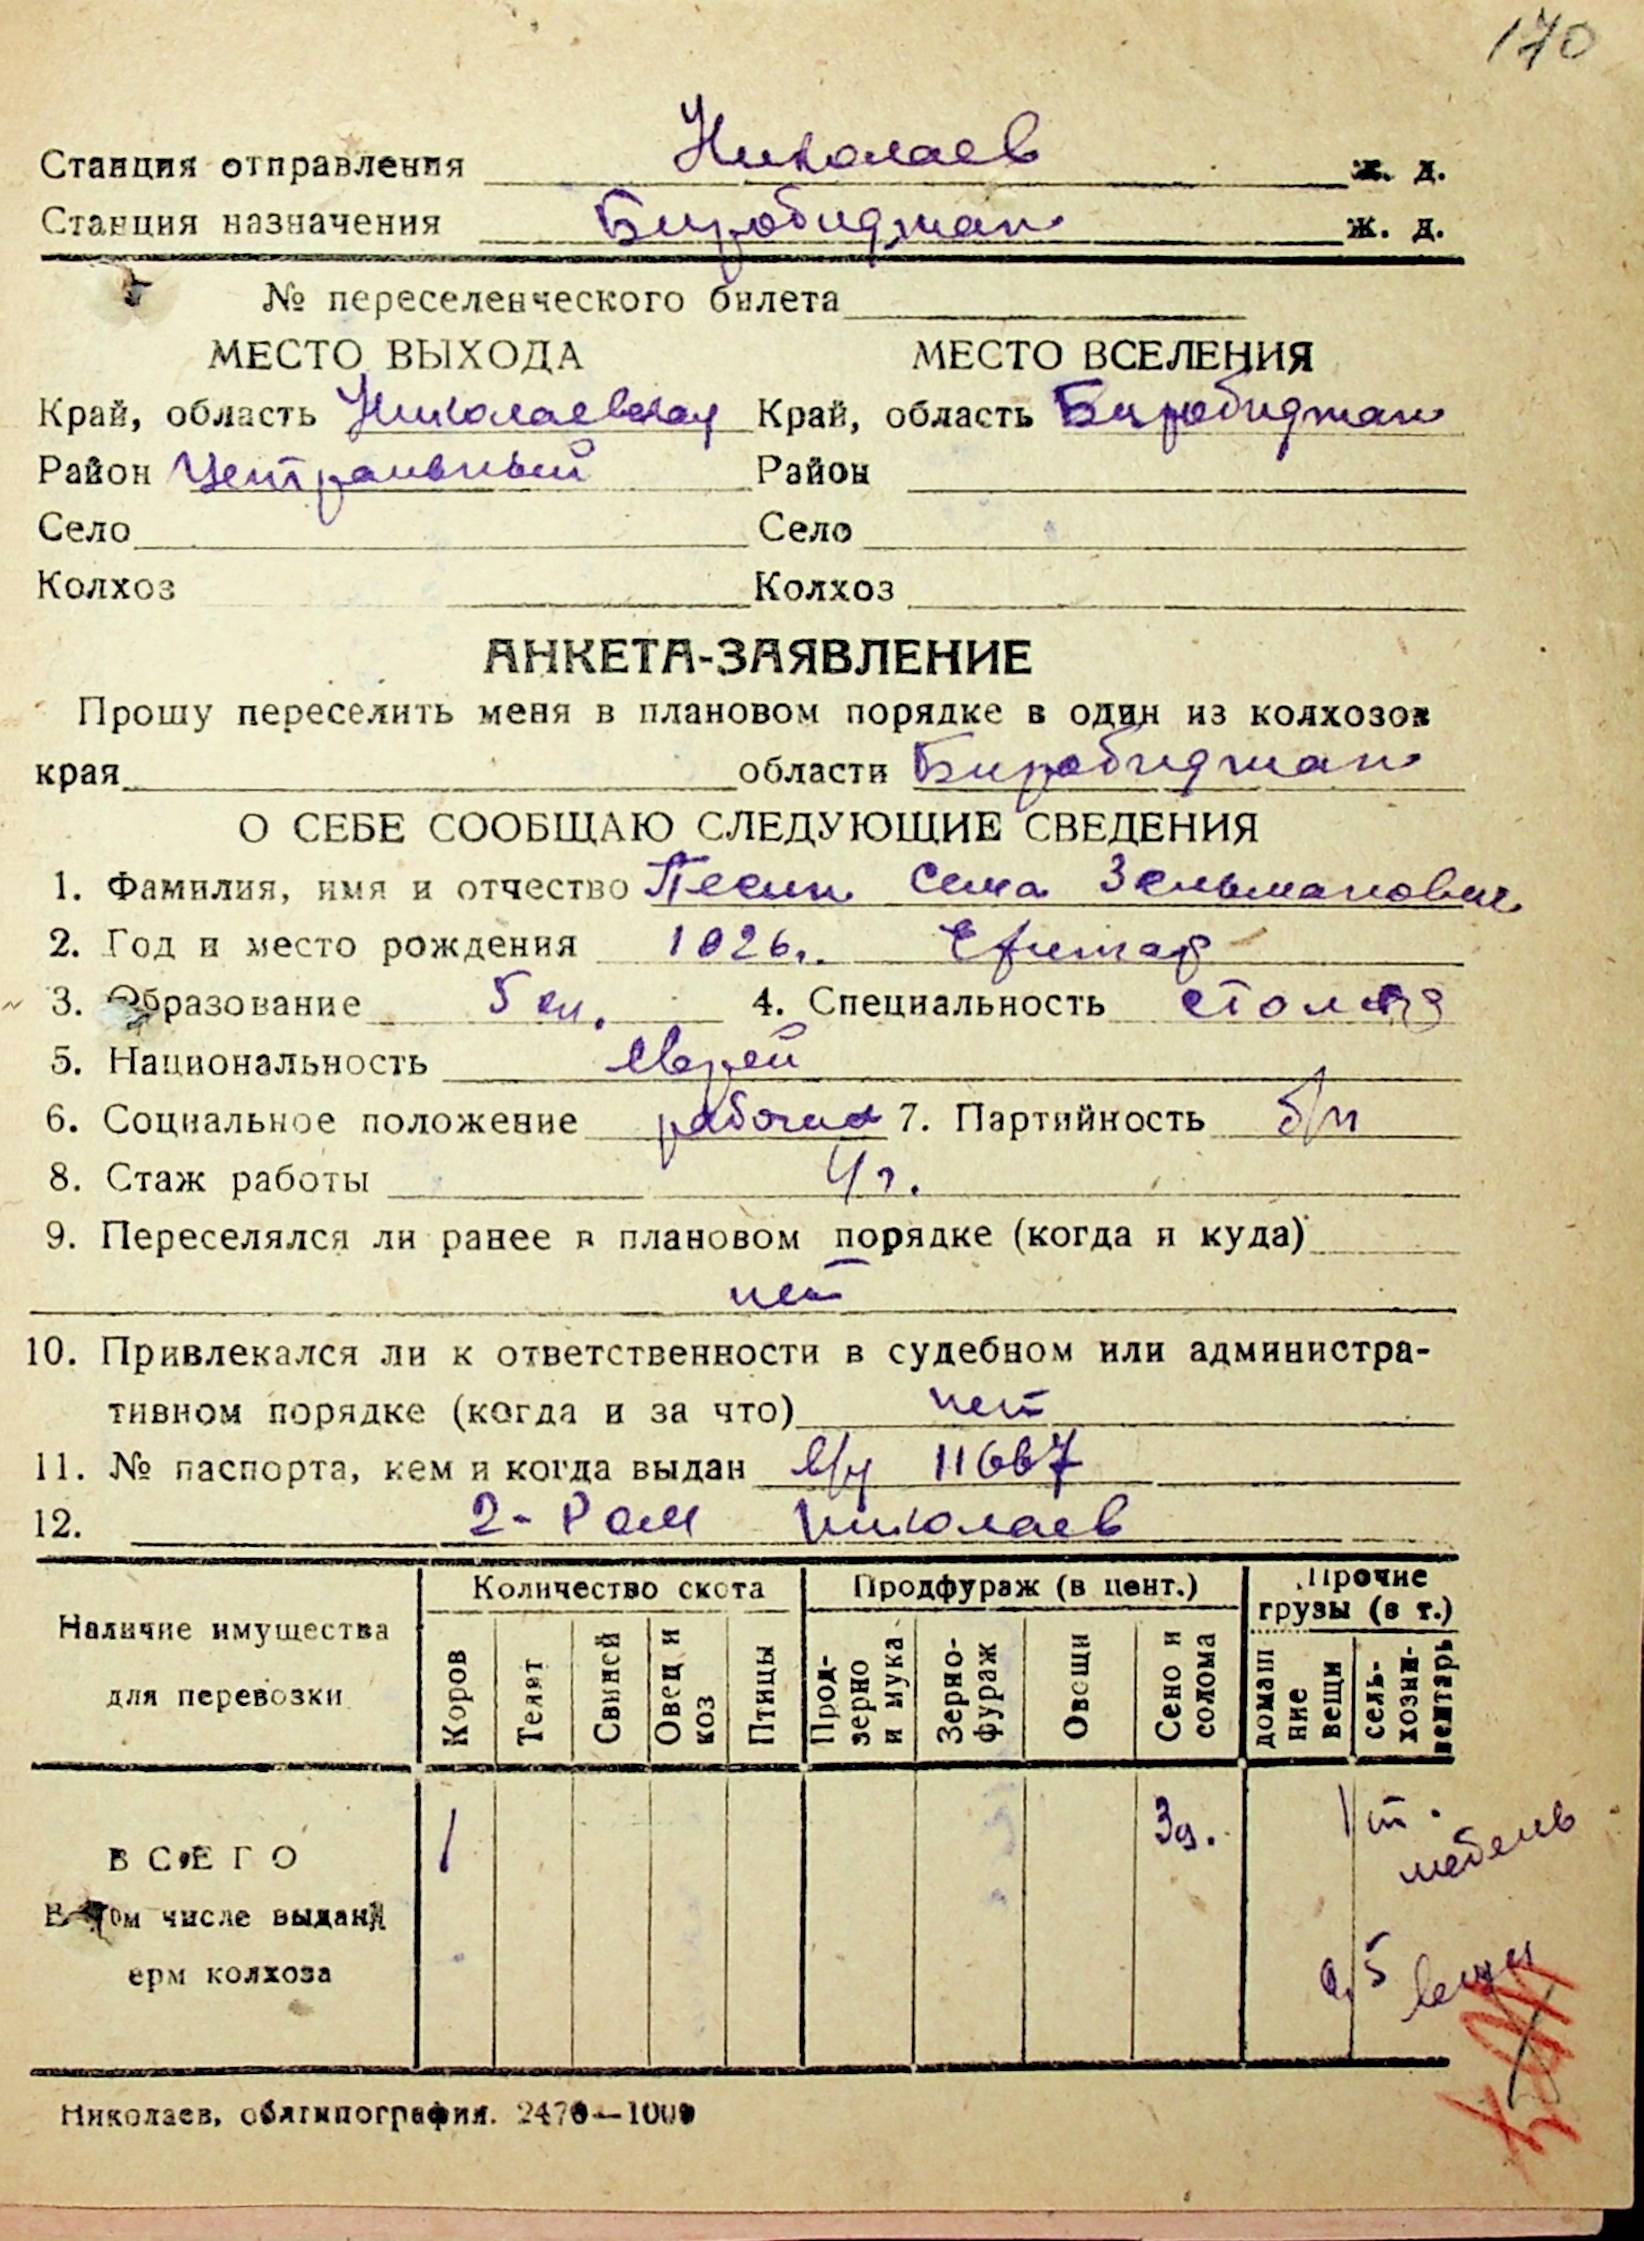 170
Станция отправления Николаев ж. д.
Станция назначения Биробиджан ж. д.
№ переселенческого билета
МЕСТО ВЫХОДА МЕСТО ВСЕЛЕНИЯ
Край, область Николаевская Край, область Биробиджан
Район Центральный Район
Село Село
Колхоз Колхоз
АНКЕТА-ЗАЯВЛЕНИЕ
Прошу переселить меня в плановом порядке в один из колхозов
края области Биробиджан
О СЕБЕ СООБЩАЮ СЛЕДУЮЩИЕ СВЕДЕНИЯ
1. Фамилия, имя и отчество Песин Сема Зельманович
2. Год и место рождения 1926г.
3. Образование 5 кл. 4. Специальность столяр
5. Национальность еврей
6. Социальное положение рабочий 7. Партийность б/п
8. Стаж работы 4 г.
9. Переселялся ли ранее в плановом порядке (когда и куда)
нет
10. Привлекался ли к ответственности в судебном или администра-
тивном порядке (когда и за что) нет
11. № паспорта, кем и когда выдан 11667
12. 2-Р ом Николаев
Наличие имущества для перевозки Количество скота Продфураж (в цент.) Прочие грузы (в т.)
Коров Телят Свиней Овец и коз Птицы Прод-зерно и мука Зерно-фураж Овощи Сено и солома домаш ние вещи сель-хозин-вентарь
ВСЕГО 1 3 1 т. мебель
В том числе выдан
ерм колхоза 0,5 вещи
Николаев, облтипография. 2470—1000